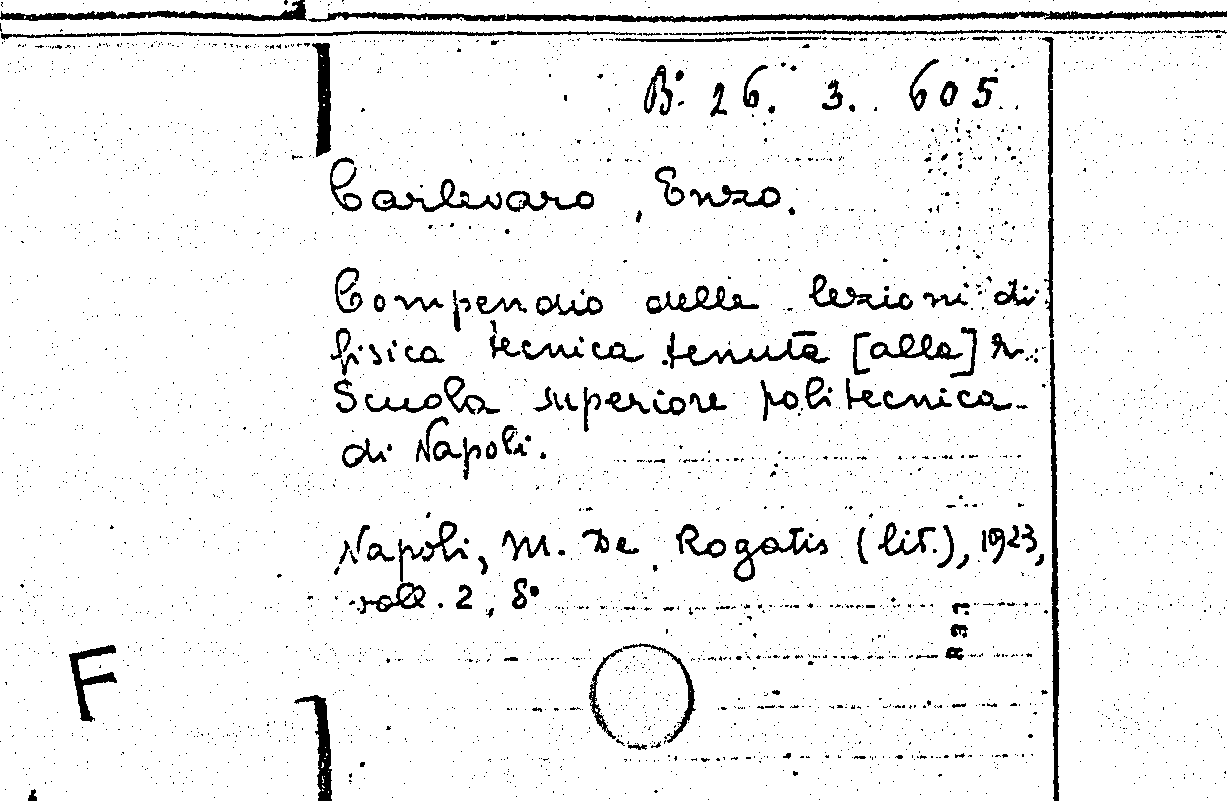 B. 26. 3. 605
Carlevaro, Enzo.
Compendio delle lezioni di
fisica tecnica tenuta [alla] R.
Scuola superiore politecnica
di Napoli.
Napoli, M. De Rogatis (lit.), 1923,
voll. 2, 8°
R31
F